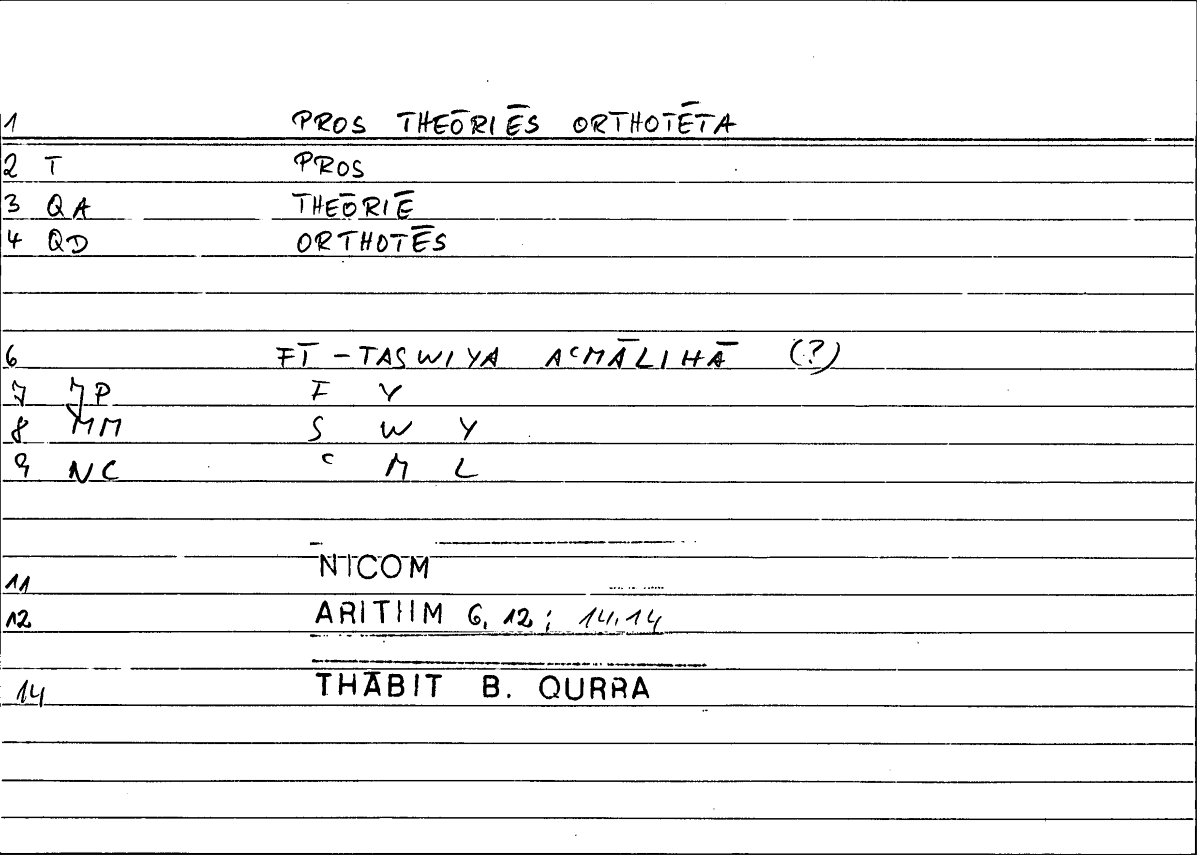 1 PROS THEŌRIĒS ORTHOTĒTA
2 T PROS
3 QA THEŌRIĒ
4 QD ORTHOTĒS
6 FĪ-TASWIYA AᶜMĀLIHĀ (?)
7 JP F Y
8 MM S W Y
9 NC ᶜ M L
11 NICOM
12 ARITHM 6, 12; 14.14
14 THĀBIT B. QURRA